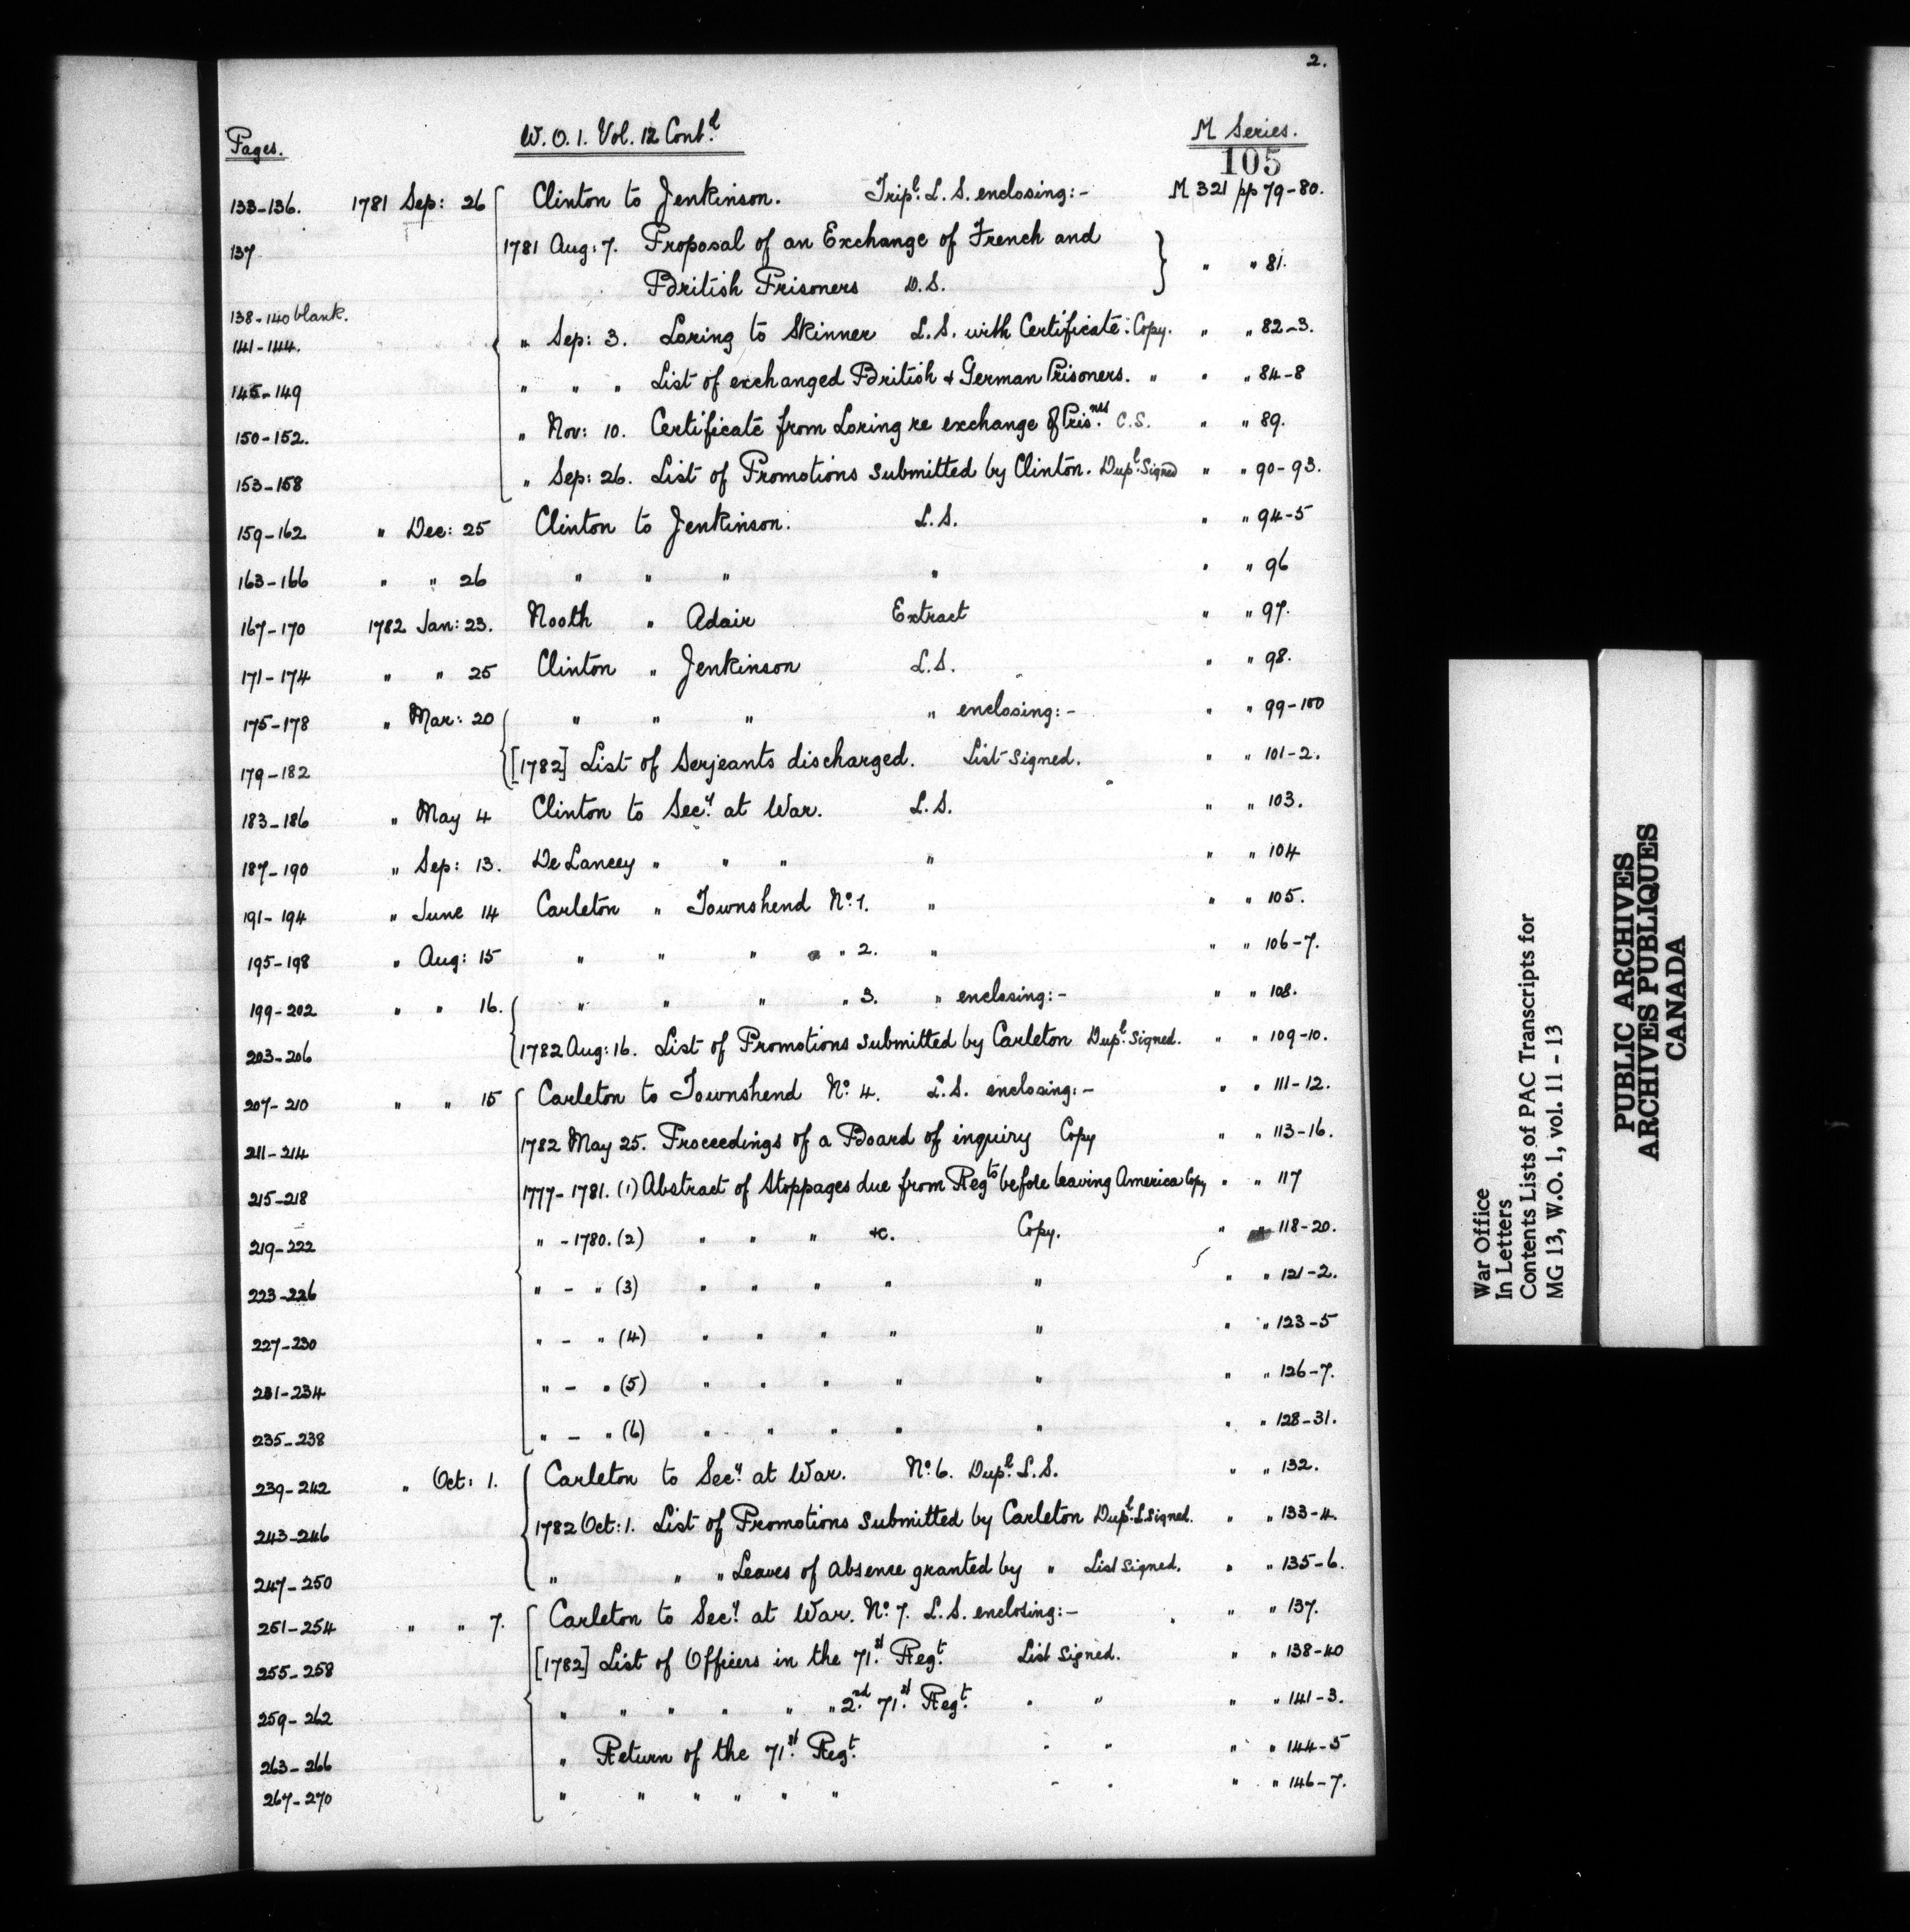 2.
Pages. W. O. 1. Vol. 12 Contd. M Series.
105
133-136. 1781 Sep: 26 Clinton to Jenkinson. Tripl. L. S. enclosing:- M 321 pp 79-80.
137 1781 Aug: 7. Proposal of an Exchange of French and
British Prisoners D. S. " " 81.
138-140 blank.
141-144. " Sep: 3. Loring to Skinner L. S. with Certificate: Copy. " " 82-3.
145-149 " " " List of exchanged British & German Prisoners. " " " 84-8
150-152. " Nov: 10. Certificate from Loring re exchange of Prisnrs. C. S. " " 89.
153-158 " Sep: 26. List of Promotions submitted by Clinton. Dupl. Signed " " 90-93.
159-162 " Dec: 25 Clinton to Jenkinson. L. S. " " 94-5
163-166 " " 26 " " " " " " 96
167-170 1782 Jan: 23. Nooth " Adair Extract " " 97.
171-174 " " 25 Clinton " Jenkinson L. S. " " 98.
175-178 " Mar: 20 " " " " enclosing:- " " 99-100
179-182 [1782] List of Serjeants discharged. List Signed. " " 101-2.
183-186 " May 4 Clinton to Secy. at War. L. S. " " 103.
187-190 " Sep: 13. De Lancey " " " " " " 104
191-194 " June 14 Carleton " Townshend No. 1. " " " 105.
195-198 " Aug: 15 " " " " 2. " " " 106-7.
199-202 " " 16. " " " " 3. " enclosing:- " " 108.
203-206 1782 Aug: 16. List of Promotions submitted by Carleton Dupl. Signed. " " 109-10.
207-210 " " 15 Carleton to Townshend No. 4. L. S. enclosing:- " " 111-12.
211-214 1782 May 25. Proceedings of a Board of inquiry Copy " " 113-16.
215-218 1777-1781. (1) Abstract of Stoppages due from Regts before leaving America Copy " " 117
219-222 " - 1780. (2) " " " &c. Copy. " " 118-20.
223-226 " - " (3) " " " " " " " 121-2.
227-230 " - " (4) " " " " " " " 123-5
231-234 " - " (5) " " " " " " " 126-7.
235-238 " - " (6) " " " " " " " 128-31.
239-242 " Oct: 1. Carleton to Secy. at War. No. 6. Dupl. L. S. " " 132.
243-246 1782 Oct: 1. List of Promotions submitted by Carleton Dupl. L Signed. " " 133-4.
247-250 " " " Leaves of Absence granted by " List Signed. " " 135-6.
251-254 " " 7. Carleton to Secy. at War. No. 7. L. S. enclosing:- " " 137.
255-258 [1782] List of Officers in the 71st. Regt. List Signed. " " 138-40
259-262 " " " " " " 2nd. 71st. Regt. " " " " 141-3.
263-266 " Return of the 71st. Regt. " " " " 144-5
267-270 " " " " " " " " " " 146-7.
War Office
In Letters
Contents Lists of PAC Transcripts for
MG 13, W.O. 1, vol. 11 - 13
PUBLIC ARCHIVES
ARCHIVES PUBLIQUES
CANADA